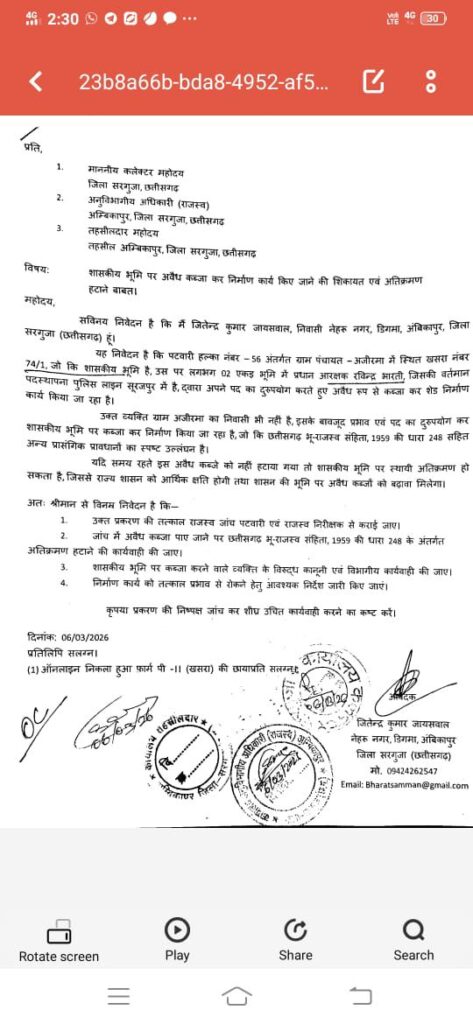 4G 2:30 VoI LTE 4G 30
23b8a66b-bda8-4952-af5...
प्रति,
1. माननीय कलेक्टर महोदय
जिला सरगुजा, छत्तीसगढ़
2. अनुविभागीय अधिकारी (राजस्व)
अम्बिकापुर, जिला सरगुजा, छत्तीसगढ़
3. तहसीलदार महोदय
तहसील अम्बिकापुर, जिला सरगुजा, छत्तीसगढ़
विषय: शासकीय भूमि पर अवैध कब्जा कर निर्माण कार्य किए जाने की शिकायत एवं अतिक्रमण
हटाने बाबत।
महोदय,
सविनय निवेदन है कि मैं जितेन्द्र कुमार जायसवाल, निवासी नेहरू नगर, डिगमा, अंबिकापुर, जिला
सरगुजा (छत्तीसगढ़) हूं।
यह निवेदन है कि पटवारी हल्का नंबर – 56 अंतर्गत ग्राम पंचायत – अजीरमा में स्थित खसरा नंबर
74/1, जो कि शासकीय भूमि है, उस पर लगभग 02 एकड़ भूमि में प्रधान आरक्षक रविन्द्र भारती, जिसकी वर्तमान
पदस्थापना पुलिस लाइन सूरजपुर में है, द्वारा अपने पद का दुरुपयोग करते हुए अवैध रूप से कब्जा कर शेड निर्माण
कार्य किया जा रहा है।
उक्त व्यक्ति ग्राम अजीरमा का निवासी भी नहीं है, इसके बावजूद प्रभाव एवं पद का दुरुपयोग कर
शासकीय भूमि पर कब्जा कर निर्माण किया जा रहा है, जो कि छत्तीसगढ़ भू-राजस्व संहिता, 1959 की धारा 248 सहित
अन्य प्रासंगिक प्रावधानों का स्पष्ट उल्लंघन है।
यदि समय रहते इस अवैध कब्जे को नहीं हटाया गया तो शासकीय भूमि पर स्थायी अतिक्रमण हो
सकता है, जिससे राज्य शासन को आर्थिक क्षति होगी तथा शासन की भूमि पर अवैध कब्जों को बढ़ावा मिलेगा।
अतः श्रीमान से विनम्र निवेदन है कि—
1. उक्त प्रकरण की तत्काल राजस्व जांच पटवारी एवं राजस्व निरीक्षक से कराई जाए।
2. जांच में अवैध कब्जा पाए जाने पर छत्तीसगढ़ भू-राजस्व संहिता, 1959 की धारा 248 के अंतर्गत
अतिक्रमण हटाने की कार्यवाही की जाए।
3. शासकीय भूमि पर कब्जा करने वाले व्यक्ति के विरुद्ध कानूनी एवं विभागीय कार्यवाही की जाए।
4. निर्माण कार्य को तत्काल प्रभाव से रोकने हेतु आवश्यक निर्देश जारी किए जाएं।
कृपया प्रकरण की निष्पक्ष जांच कर शीघ्र उचित कार्यवाही करने का कष्ट करें।
दिनांक: 06/03/2026
प्रतिलिपि सलग्न।
(1) ऑनलाइन निकला हुआ फार्म पी -II (खसरा) की छायाप्रति सलग्न।
आवेदक
जितेन्द्र कुमार जायसवाल
नेहरू नगर, डिगमा, अंबिकापुर
जिला सरगुजा (छत्तीसगढ़)
मो. 09424262547
Email: Bharatsamman@gmail.com
OC
06/03/26
कार्यालय तहसीलदार
Rotate screen Play Share Search